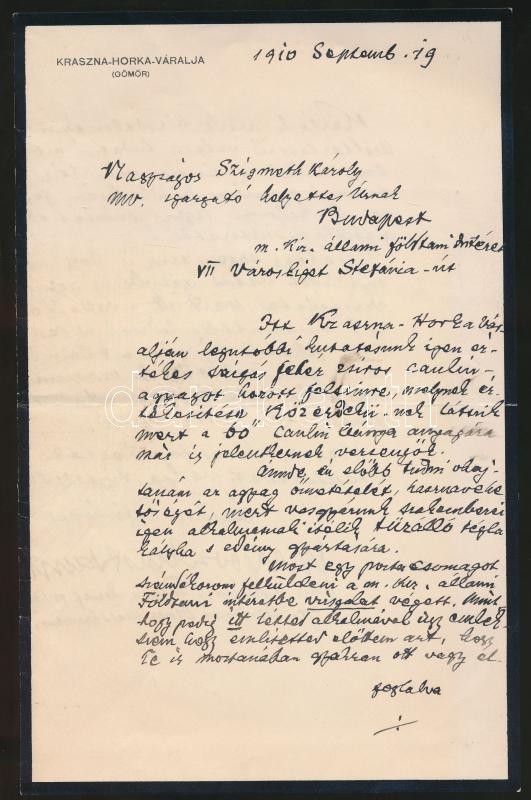 KRASZNA-HORKA-VÁRALJA
(GÖMÖR)
1910 Septemb. 19
Nagyságos Szigmeth Károly
mv. igazgató helyettes Úrnak
Budapest
m. Kir. állami földtani Intézet
VII Városliget Stefánia-út
Itt Kraszna-Horka Vár-
alján legutóbbi kutatásunk igen ér-
tékes vaskos fehér caulin-
agyagot hozott felszinre, melynek ér-
tékesitése Közérdekü-nek látszik
mert a caulin bánya anyagára
már is jelentkeznek versenyzők.
én előbb tudni ohaj-
tanám az agyag összetételét, hasznavehe
tőségét, mert vasgyárunk szakemberei
igen alkalmasnak itélik tűzálló tégla
kályha s edény gyártására.
Most egy posta csomagot
szándékozom felküldeni a m. Kir. állami
Földtani intézetbe vizsgálat végett. Mint
hogy pedig itt létted alkalmával úgy emlék-
szem hogy emlitetted előttem azt, hogy
Te is mostanában gyakran ott vagy el-
foglalva
darabanth